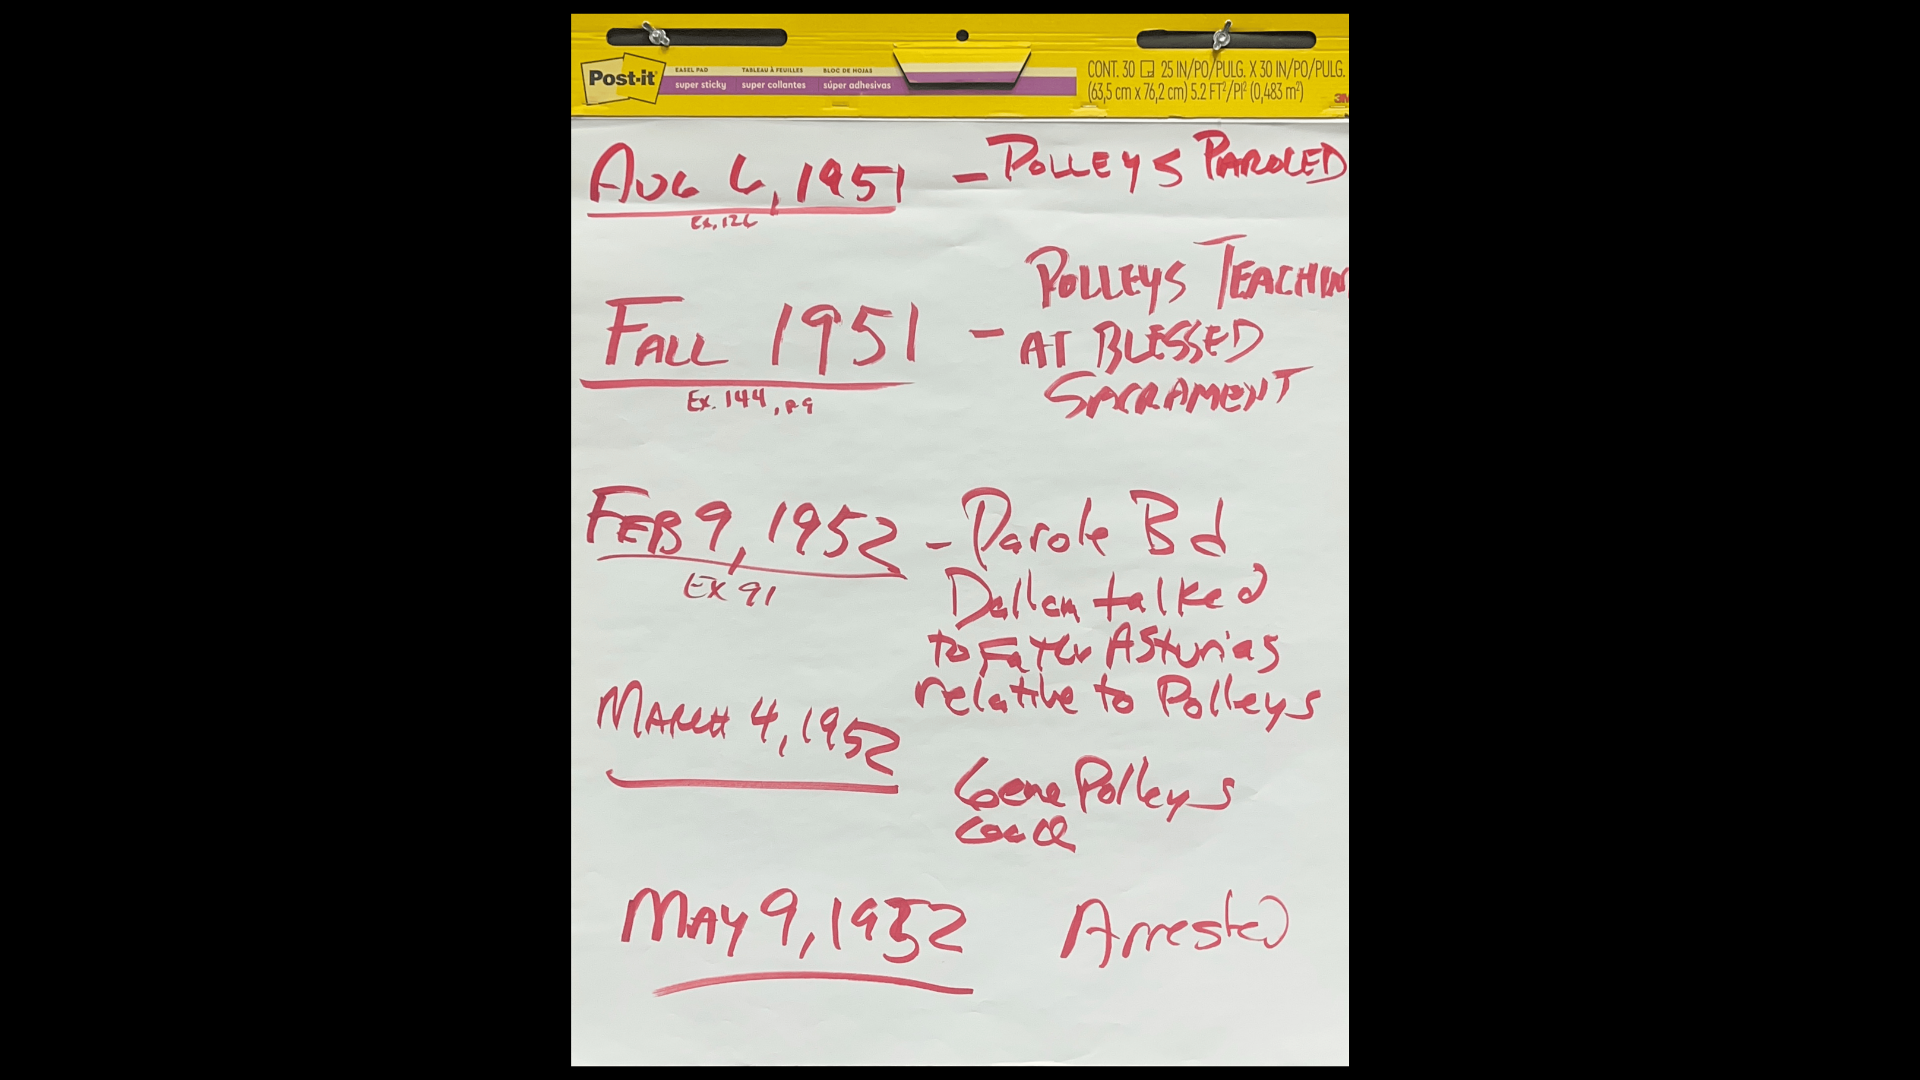 Post-it
EASEL PAD TABLEAU À FEUILLES BLOC DE HOJAS
super sticky super collantes súper adhesivas
CONT. 30 25 IN/PO/PULG. X 30 IN/PO/PULG.
(63,5 cm x 76,2 cm) 5.2 FT²/PI² (0,483 m²)
3M
AUG 6, 1951 - POLLEYS PAROLED
Ex. 126
FALL 1951 - POLLEYS TEACHIN
AT BLESSED
SACRAMENT
Ex. 144, pg
FEB 9, 1952 - Parole Bd
Ex 91
Dallam talked
to Father Asturias
relative to Polleys
MARCH 4, 1952
Gene Polleys
MAY 9, 1952 Arrested